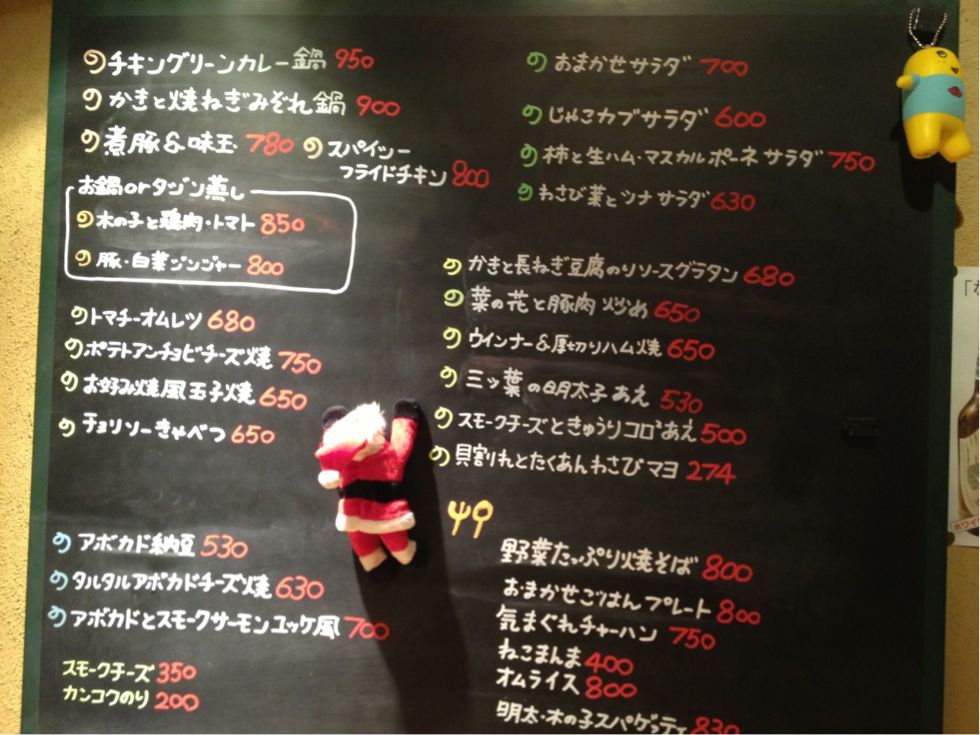 のチキングリーンカレー鍋 950
のかきと焼ねぎみぞれ鍋 900
の煮豚&味玉 780
のスパイシー
フライドチキン 800
お鍋orタジン蒸し
の木の子と鶏肉・トマト 850
の豚・白菜ジンジャー 800
のトマチーオムレツ 680
のポテトアンチョビチーズ焼 750
のお好み焼風玉子焼 650
のチョリソーきゃべつ 650
のアボカド納豆 530
のタルタルアボカドチーズ焼 630
のアボカドとスモークサーモンユッケ風 700
スモークチーズ 350
カンコクのり 200
のおまかせサラダ 700
のじゃこカブサラダ 600
の柿と生ハム・マスカルポーネサラダ 750
のわさび菜とツナサラダ 630
のかきと長ねぎ豆腐のりソースグラタン 680
の菜の花と豚肉炒め 650
のウインナー&厚切りハム焼 650
の三ッ葉の明太子あえ 530
のスモークチーズときゅうりコロコロあえ 500
の貝割れとたくあんわさびマヨ 274
野菜たっぷり焼そば 800
おまかせごはんプレート 800
気まぐれチャーハン 750
ねこまんま 400
オムライス 800
明太・木の子スパゲッティ 830